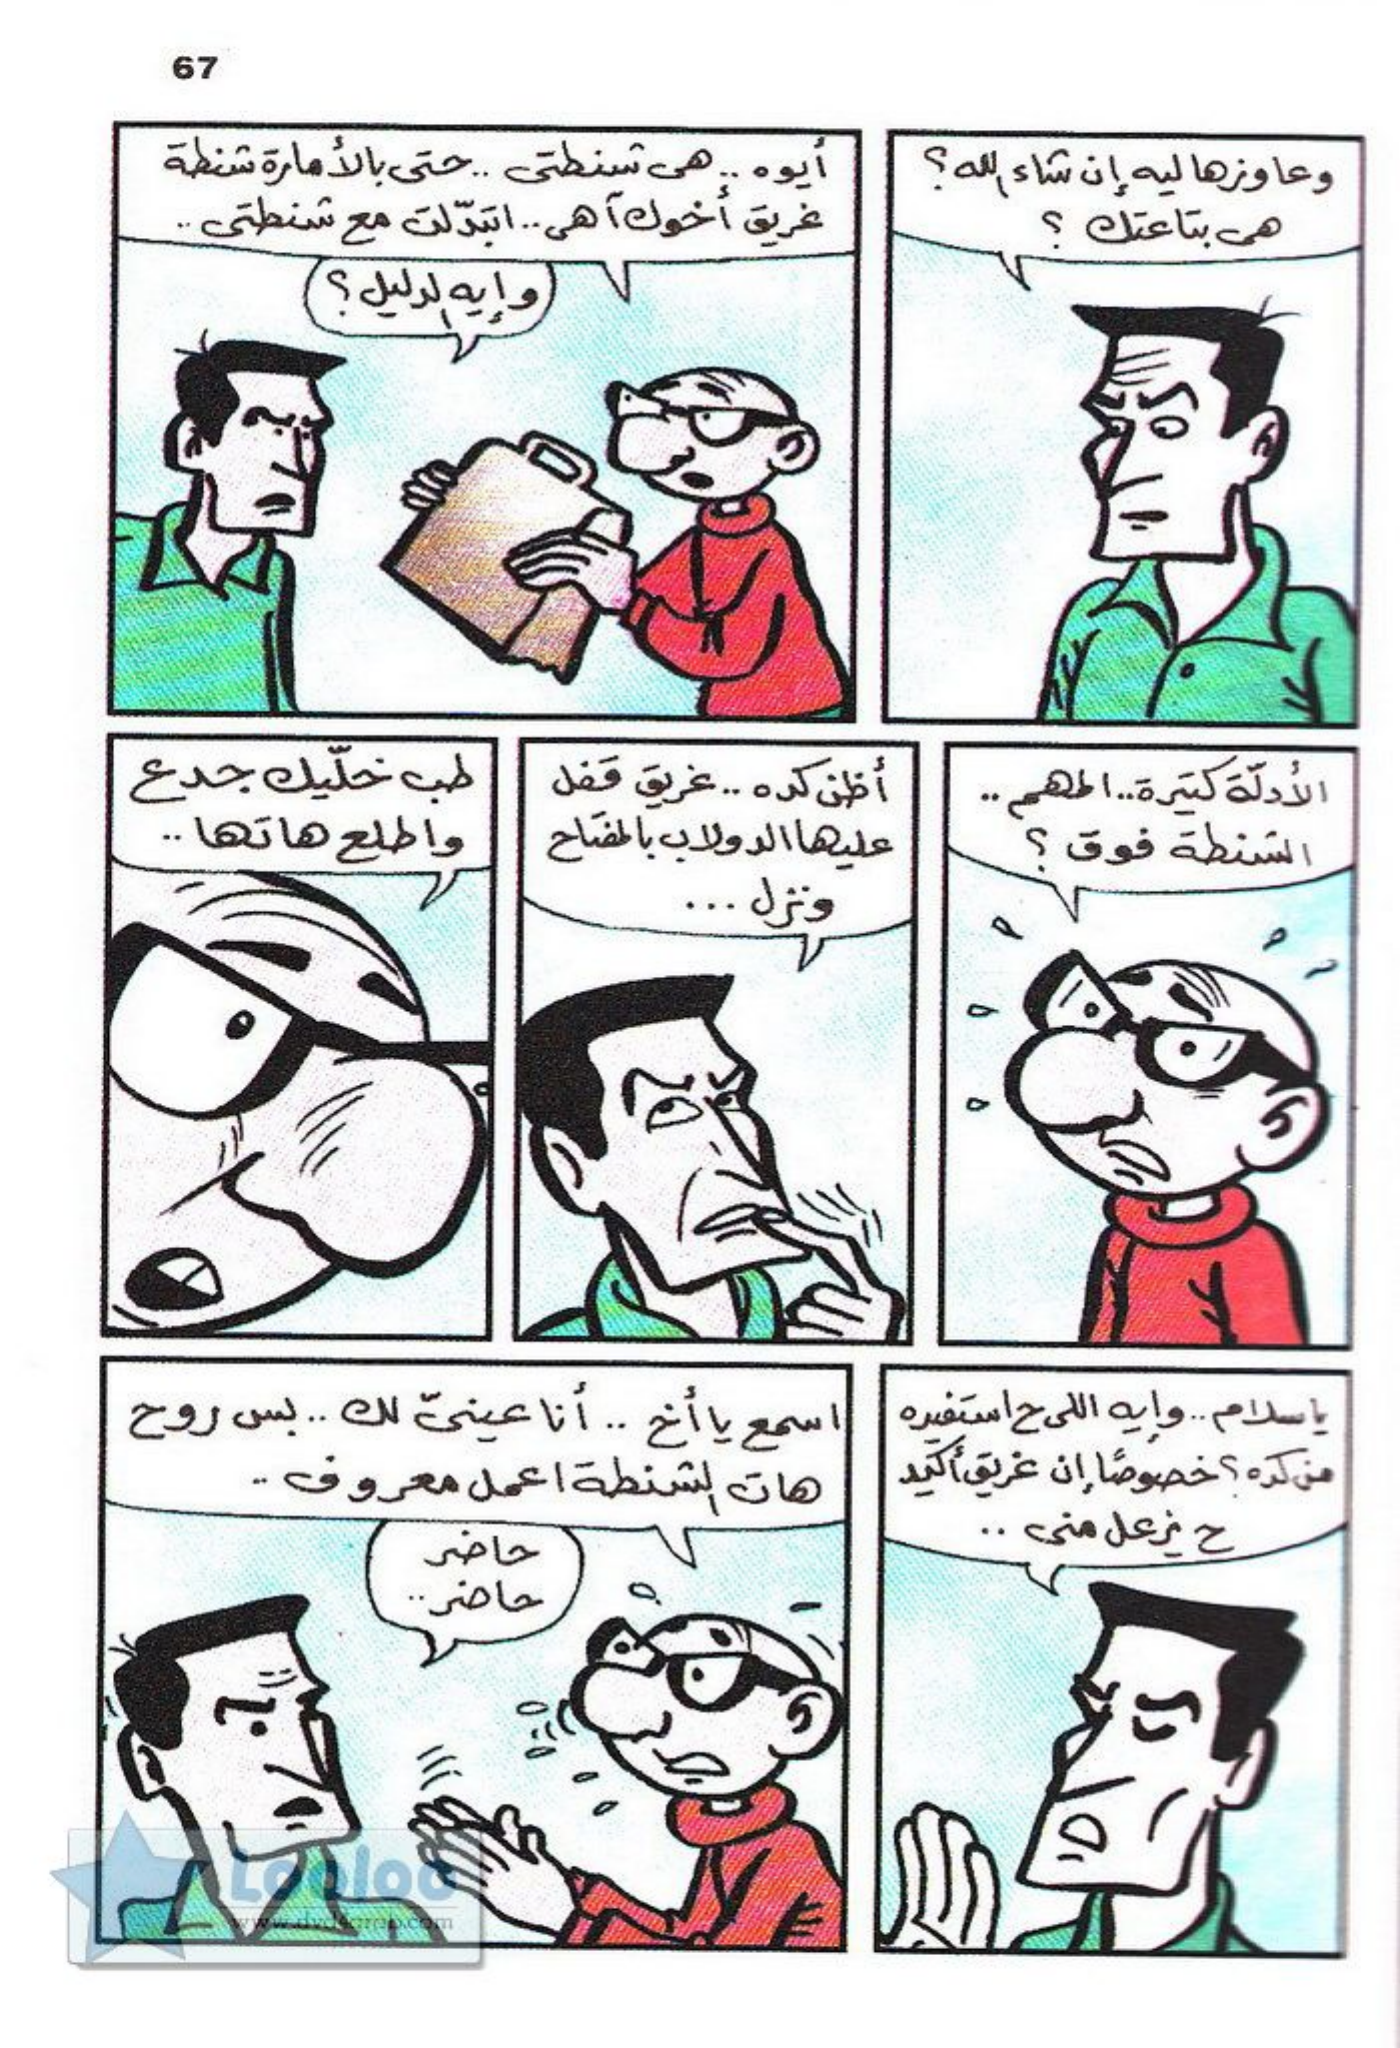 67
وعاوزها ليه إن شاء الله؟
هى بتاعتك ؟
أيوه .. هى شنطتى .. حتى بالأمارة شنطة
غريق أخوك آهى .. اتبدّلت مع شنطتى ..
وإيه الدليل؟
الأدلّة كتيرة.. المهم ..
الشنطة فوق ؟
أظن كده .. غريق قفل
عليها الدولاب بالمفتاح
ونزل ...
طب خلّيك جدع
واطلع هاتها ..
ياسلام .. وإيه اللى ح استفيده
من كده؟ خصوصًا إن غريق أكيد
ح يزعل منى ..
اسمع يا أخ .. أنا عينىّ لك .. بس روح
هات الشنطة اعمل معروف ..
حاضر
حاضر..
Looloo
www.dvd4arab.com